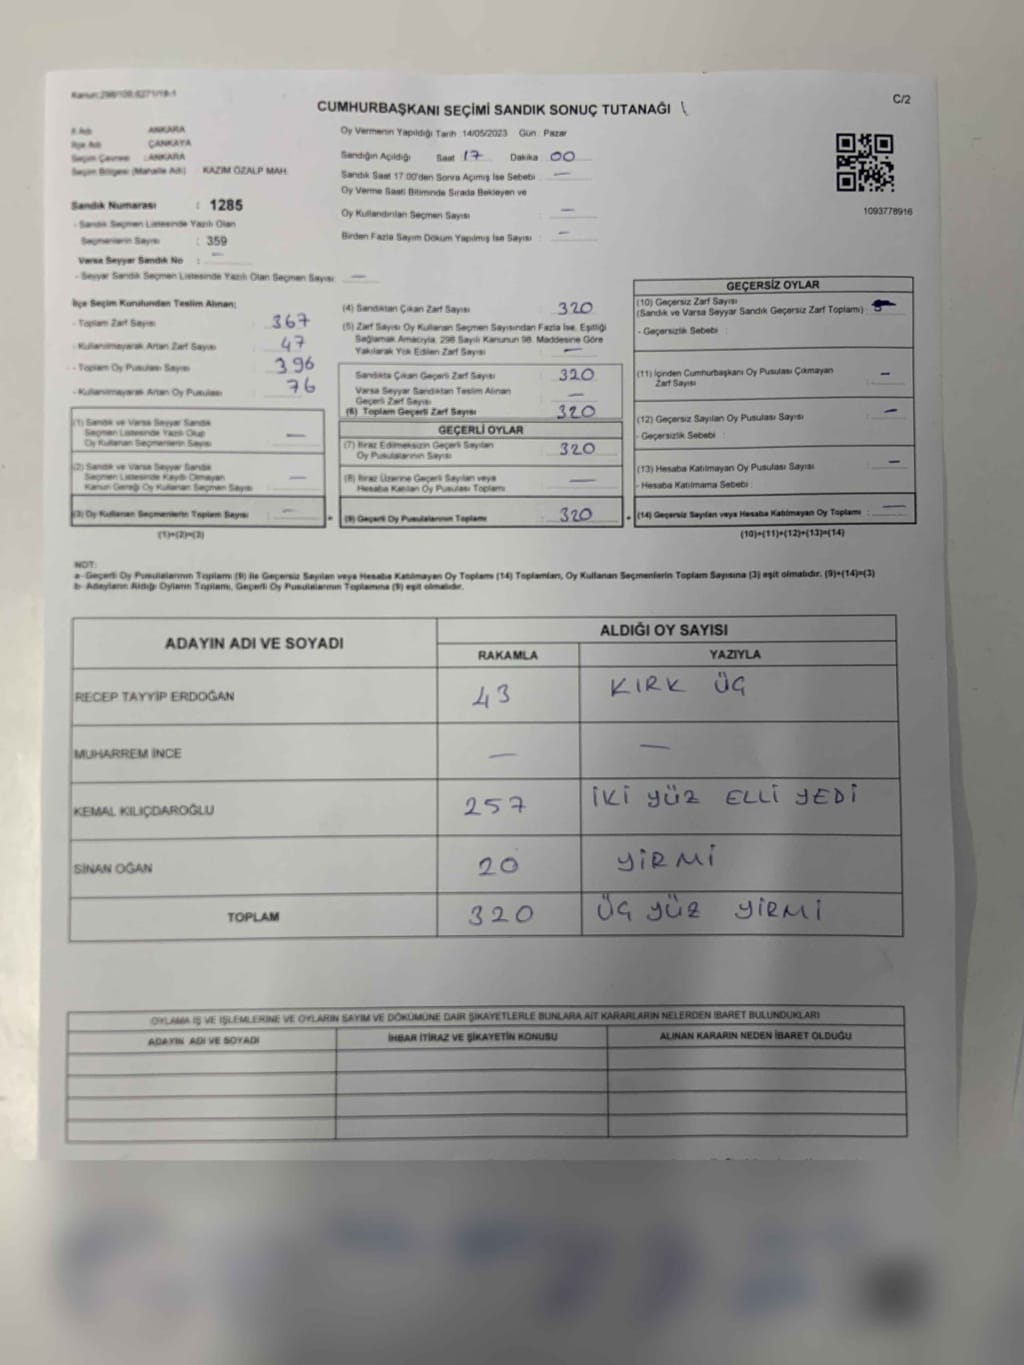 Kanun:298/105,6271/18-1
C/2
CUMHURBAŞKANI SEÇİMİ SANDIK SONUÇ TUTANAĞI
İl Adı : ANKARA
İlçe Adı : ÇANKAYA
Seçim Çevresi : ANKARA
Seçim Bölgesi (Mahalle Adı) : KAZIM ÖZALP MAH.
Sandık Numarası : 1285
- Sandık Seçmen Listesinde Yazılı Olan
Seçmenlerin Sayısı : 359
Varsa Seyyar Sandık No : —
- Seyyar Sandık Seçmen Listesinde Yazılı Olan Seçmen Sayısı: —
Oy Vermenin Yapıldığı Tarih :14/05/2023 Gün : Pazar
Sandığın Açıldığı Saat : 17 Dakika : 00
Sandık Saat 17:00'den Sonra Açımış İse Sebebi : —
Oy Verme Saati Bitiminde Sırada Bekleyen ve
Oy Kullandırılan Seçmen Sayısı : —
Birden Fazla Sayım Döküm Yapılmış İse Sayısı : —
1093778916
İlçe Seçim Kurulundan Teslim Alınan;
- Toplam Zarf Sayısı : 367
- Kullanılmayarak Artan Zarf Sayısı : 47
- Toplam Oy Pusulası Sayısı : 396
- Kullanılmayarak Artan Oy Pusulası : 76
(1) Sandık ve Varsa Seyyar Sandık
Seçmen Listesinde Yazılı Olup
Oy Kullanan Seçmenlerin Sayısı : —
(2) Sandık ve Varsa Seyyar Sandık
Seçmen Listesinde Kaydı Olmayan
Kanun Gereği Oy Kullanan Seçmen Sayısı : —
(3) Oy Kullanan Seçmenlerin Toplam Sayısı : —
(1)+(2)=(3)
(4) Sandıktan Çıkan Zarf Sayısı : 320
(5) Zarf Sayısı Oy Kullanan Seçmen Sayısından Fazla İse, Eşitliği
Sağlamak Amacıyla, 298 Sayılı Kanunun 98. Maddesine Göre
Yakılarak Yok Edilen Zarf Sayısı : —
Sandıkta Çıkan Geçerli Zarf Sayısı : 320
Varsa Seyyar Sandıktan Teslim Alınan
Geçerli Zarf Sayısı : —
(6) Toplam Geçerli Zarf Sayısı : 320
GEÇERLİ OYLAR
(7) İtiraz Edilmeksizin Geçerli Sayılan
Oy Pusulalarının Sayısı : 320
(8) İtiraz Üzerine Geçerli Sayılan veya
Hesaba Katılan Oy Pusulası Toplamı : —
(9) Geçerli Oy Pusulalarının Toplamı : 320
GEÇERSİZ OYLAR
(10) Geçersiz Zarf Sayısı
(Sandık ve Varsa Seyyar Sandık Geçersiz Zarf Toplamı) :
- Geçersizlik Sebebi :
(11) İçinden Cumhurbaşkanı Oy Pusulası Çıkmayan
Zarf Sayısı : —
(12) Geçersiz Sayılan Oy Pusulası Sayısı : —
- Geçersizlik Sebebi :
(13) Hesaba Katılmayan Oy Pusulası Sayısı : —
- Hesaba Katılmama Sebebi :
(14) Geçersiz Sayılan veya Hesaba Katılmayan Oy Toplamı : —
(10)+(11)+(12)+(13)=(14)
NOT:
a- Geçerli Oy Pusulalarının Toplamı (9) ile Geçersiz Sayılan veya Hesaba Katılmayan Oy Toplamı (14) Toplamları, Oy Kullanan Seçmenlerin Toplam Sayısına (3) eşit olmalıdır. (9)+(14)=(3)
b- Adayların Aldığı Oyların Toplamı, Geçerli Oy Pusulalarının Toplamına (9) eşit olmalıdır.
ADAYIN ADI VE SOYADI
ALDIĞI OY SAYISI
RAKAMLA YAZIYLA
RECEP TAYYİP ERDOĞAN 43 KIRK ÜÇ
MUHARREM İNCE — —
KEMAL KILIÇDAROĞLU 257 İKİ YÜZ ELLİ YEDİ
SİNAN OĞAN 20 YİRMİ
TOPLAM 320 ÜÇ YÜZ YİRMİ
OYLAMA İŞ VE İŞLEMLERİNE VE OYLARIN SAYIM VE DÖKÜMÜNE DAİR ŞİKAYETLERLE BUNLARA AİT KARARLARIN NELERDEN İBARET BULUNDUKLARI
ADAYIN ADI VE SOYADI İHBAR İTİRAZ VE ŞİKAYETİN KONUSU ALINAN KARARIN NEDEN İBARET OLDUĞU